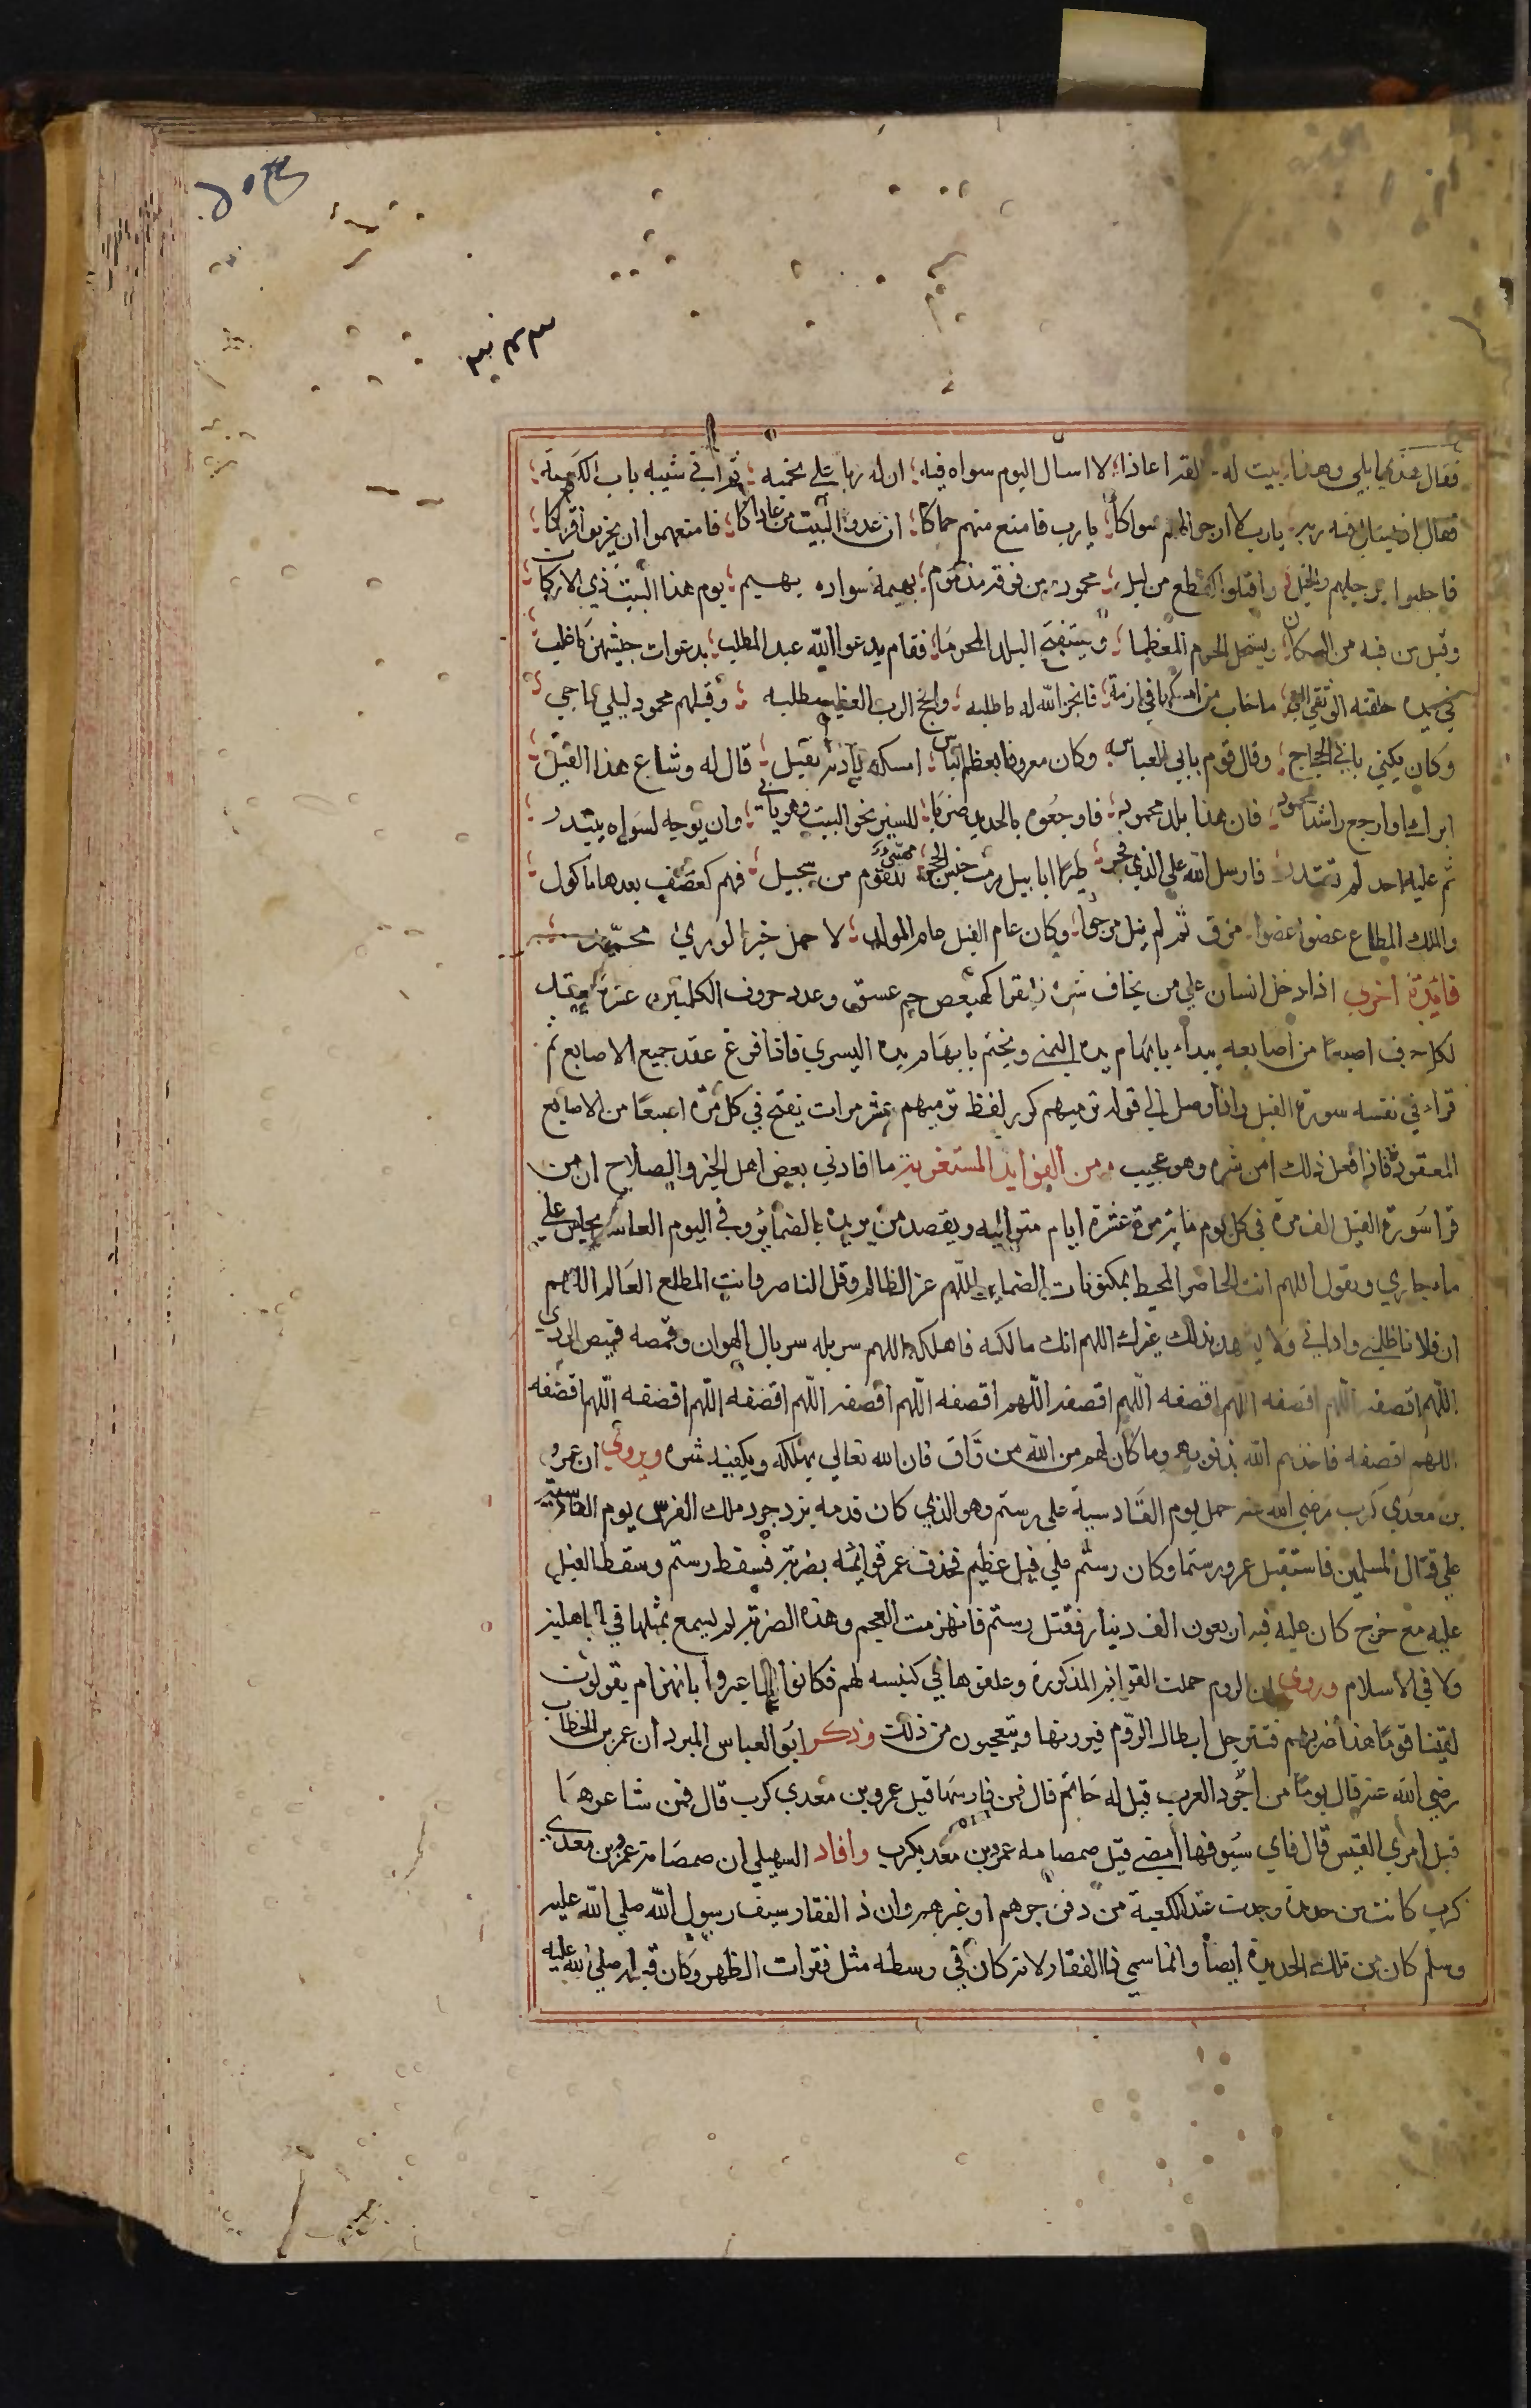 فقال هذي ابلي وهذا بيت له لقد اعاذا لا اسال اليوم سواه فيه ان له ربا علي يحميه ثم اتي شيبه باب الكعبة
فقال اذ سال فيه ربه يارب لا ارجو لهم سواكا يارب فامنع منهم حماكا ان عدو البيت من عاداكا فامنعهموا ان يخربوا قراكا
فاجلبوا برجلهم والخيل واقبلوا كقطع من ليل محمود من فوقه مذموم بهيمة سواده بهيم يوم هذا البيت ذي الاركان
وقبل من فيه من السكان ليستحل الحرم المعظما ويستبيح البلد المحرما فقام يدعوا الله عبد المطلب بدعوات جيشهن كاغلب
في يده حلقته الوثقي التي ما خاب من امسكها في ازمة فانجز الله له ما طلبه وانجح الرب العظيم مطلبه وقيلهم محمود ليلي هاجي
وكان يكني بابي الحجاج وقال قوم بابي العباس وكان معروفا بعظم الباس امسكه باذنه نفيل قال له وشاع هذا القيل
ابرك او ارجع راشدا محمود فان هذا بلد محمود فاوجعوه بالحديد ضربا للسير نحو البيت وهو يأبى وان يوجه لسواه يبتدر
ثم عليه احد لم يقتدر فارسل الله علي الذي فجر طيرا ابابيل رمت خبث الحجر مهيئ للقوم من سجيل فهم كعصف بعدها ماكول
والملك المطاع عضوا عضوا مزق ثم لم ينل مرجوا وكان عام الفيل عام المولد لا حمل خير الوري محمد
فائدة اخري اذا دخل انسان علي من يخاف شره فليقرا كهيعص حم عسق وعدد حروف الكلمتين عشرة يعقد
لكل حرف اصبعا من اصابعه يبداء بابهام يده اليمني ويختم بابهام يده اليسري فاذا فرغ عقد جميع الاصابع ثم
قراء في نفسه سورة الفيل فاذا وصل الي قوله ترميهم كرر لفظ ترميهم عشر مرات يفتح في كل مرة اصبعا من الاصابع
المعقودة فاذا فعل ذلك امن شره وهو عجيب ومن الفوايد المستغربة ما افادني بعض اهل الخير والصلاح ان من
قرا سورة الفيل الف مرة في كل يوم مائة مرة عشرة ايام متوالية ويقصد من يريده بالضماير وفي اليوم العاشر يجلس علي
ماء جاري ويقول اللهم انت الحاضر المحيط بمكنونات الضماير اللهم عز الظالم وقل الناصر وانت المطلع العالم اللهم
ان فلانا ظلمني واذاني ولا يشهد بذلك غيرك اللهم انك مالكه فاهلكه اللهم سربله سربال الهوان وقمصه قميص الردي
اللهم اقصفه اللهم اقصفه اللهم اقصفه اللهم اقصفه اللهم اقصفه اللهم اقصفه اللهم اقصفه اللهم اقصفه اللهم اقصفه
اللهم اقصفه فاخذهم الله بذنوبهم وما كان لهم من الله من واق فان الله تعالي يهلكه ويكفيه شره وروي ان عمرو
بن معدي كرب رضي الله عنه حمل يوم القادسية علي رستم وهو الذي كان قدمه يزدجرد ملك الفرس يوم القادسية
علي قتال المسلمين فاستقبل عمرو رستما وكان رستم علي فيل عظيم فحذف عمرو قوائمه بضربة فسقط رستم وسقط الفيل
عليه مع خرج كان عليه فيه اربعون الف دينار فقتل رستم فانهزمت العجم وهذه الضربة لم يسمع بمثلها في الجاهلية
ولا في الاسلام وروي ان الروم حملت القوايم المذكورة وعلقوها في كنيسه لهم فكانوا اذا عيروا بانهزام يقولون
لقينا قوما هذا ضربهم فترحل ابطال الروم فيرونها ويتعجبون من ذلك وذكر ابو العباس المبرد ان عمر بن الخطاب
رضي الله عنه قال يوما من اجود العرب قيل له حاتم قال فمن فارسها قيل عمرو بن معدي كرب قال فمن شاعرها
قيل امري القيس قال فاي سيوفها امضي قيل صمصامه عمرو بن معديكرب وافاد السهيلي ان صمصامة عمرو بن معدي
كرب كانت من حديدة وجدت عند الكعبة من دفن جرهم او غيرهم وان ذا الفقار سيف رسول الله صلي الله عليه
وسلم كان من تلك الحديدة ايضا وانما سمي ذا الفقار لانه كان في وسطه مثل فقرات الظهر وكان قبله صلي الله عليه